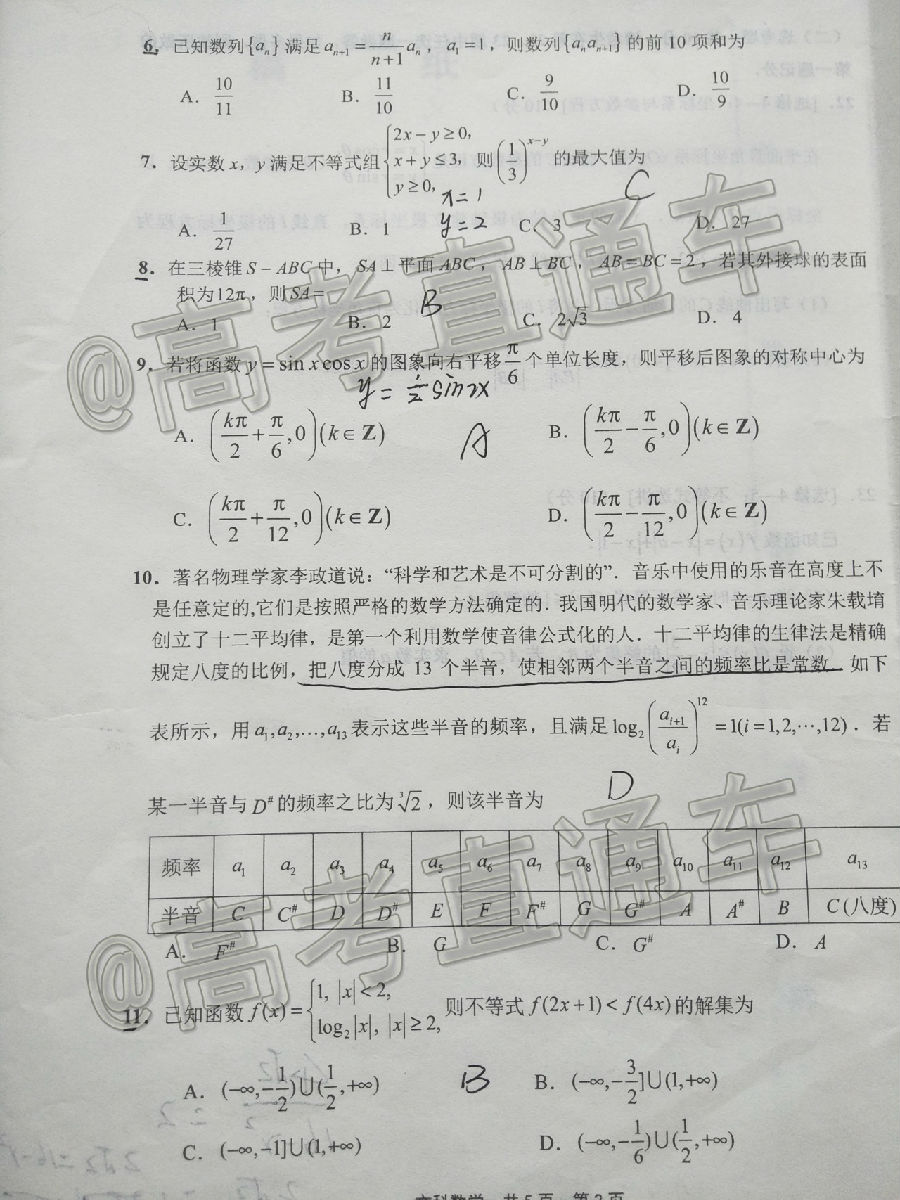 6. 已知数列{aₙ}满足 aₙ₊₁ = n/(n+1) aₙ, a₁ = 1, 则数列{aₙaₙ₊₁}的前10项和为
A. 10/11 B. 11/10 C. 9/10 D. 10/9
7. 设实数 x, y 满足不等式组 { 2x − y ≥ 0, x + y ≤ 3, y ≥ 0, 则 (1/3)^(x−y) 的最大值为
C
x=1
y=2
A. 1/27 B. 1 C. 3 D. 27
8. 在三棱锥 S − ABC 中, SA ⊥ 平面 ABC, AB ⊥ BC, AB = BC = 2, 若其外接球的表面
积为12π, 则 SA =
B
A. 1 B. 2 C. 2√3 D. 4
9. 若将函数 y = sin x cos x 的图象向右平移 π/6 个单位长度, 则平移后图象的对称中心为
y = 1/2 sin2x
A. (kπ/2 + π/6, 0)(k ∈ Z) B. (kπ/2 − π/6, 0)(k ∈ Z)
A
C. (kπ/2 + π/12, 0)(k ∈ Z) D. (kπ/2 − π/12, 0)(k ∈ Z)
10. 著名物理学家李政道说: “科学和艺术是不可分割的”. 音乐中使用的乐音在高度上不
是任意定的,它们是按照严格的数学方法确定的. 我国明代的数学家、音乐理论家朱载堉
创立了十二平均律, 是第一个利用数学使音律公式化的人. 十二平均律的生律法是精确
规定八度的比例, 把八度分成 13 个半音, 使相邻两个半音之间的频率比是常数. 如下
表所示, 用 a₁, a₂, …, a₁₃ 表示这些半音的频率, 且满足 log₂(aᵢ₊₁/aᵢ)¹² = 1(i = 1,2,⋯,12). 若
某一半音与 D# 的频率之比为 ∛2, 则该半音为
D
频率 a₁ a₂ a₃ a₄ a₅ a₆ a₇ a₈ a₉ a₁₀ a₁₁ a₁₂ a₁₃
半音 C C# D D# E F F# G G# A A# B C(八度)
A. F# B. G C. G# D. A
11. 已知函数 f(x) = { 1, |x| < 2, log₂|x|, |x| ≥ 2, 则不等式 f(2x+1) < f(4x) 的解集为
A. (−∞, −1/2)∪(1/2, +∞) B. (−∞, −3/2]∪(1, +∞)
B
C. (−∞, −1]∪(1, +∞) D. (−∞, −1/6)∪(1/2, +∞)
文科数学 共5页 第2页
@高考直通车
@高考直通车